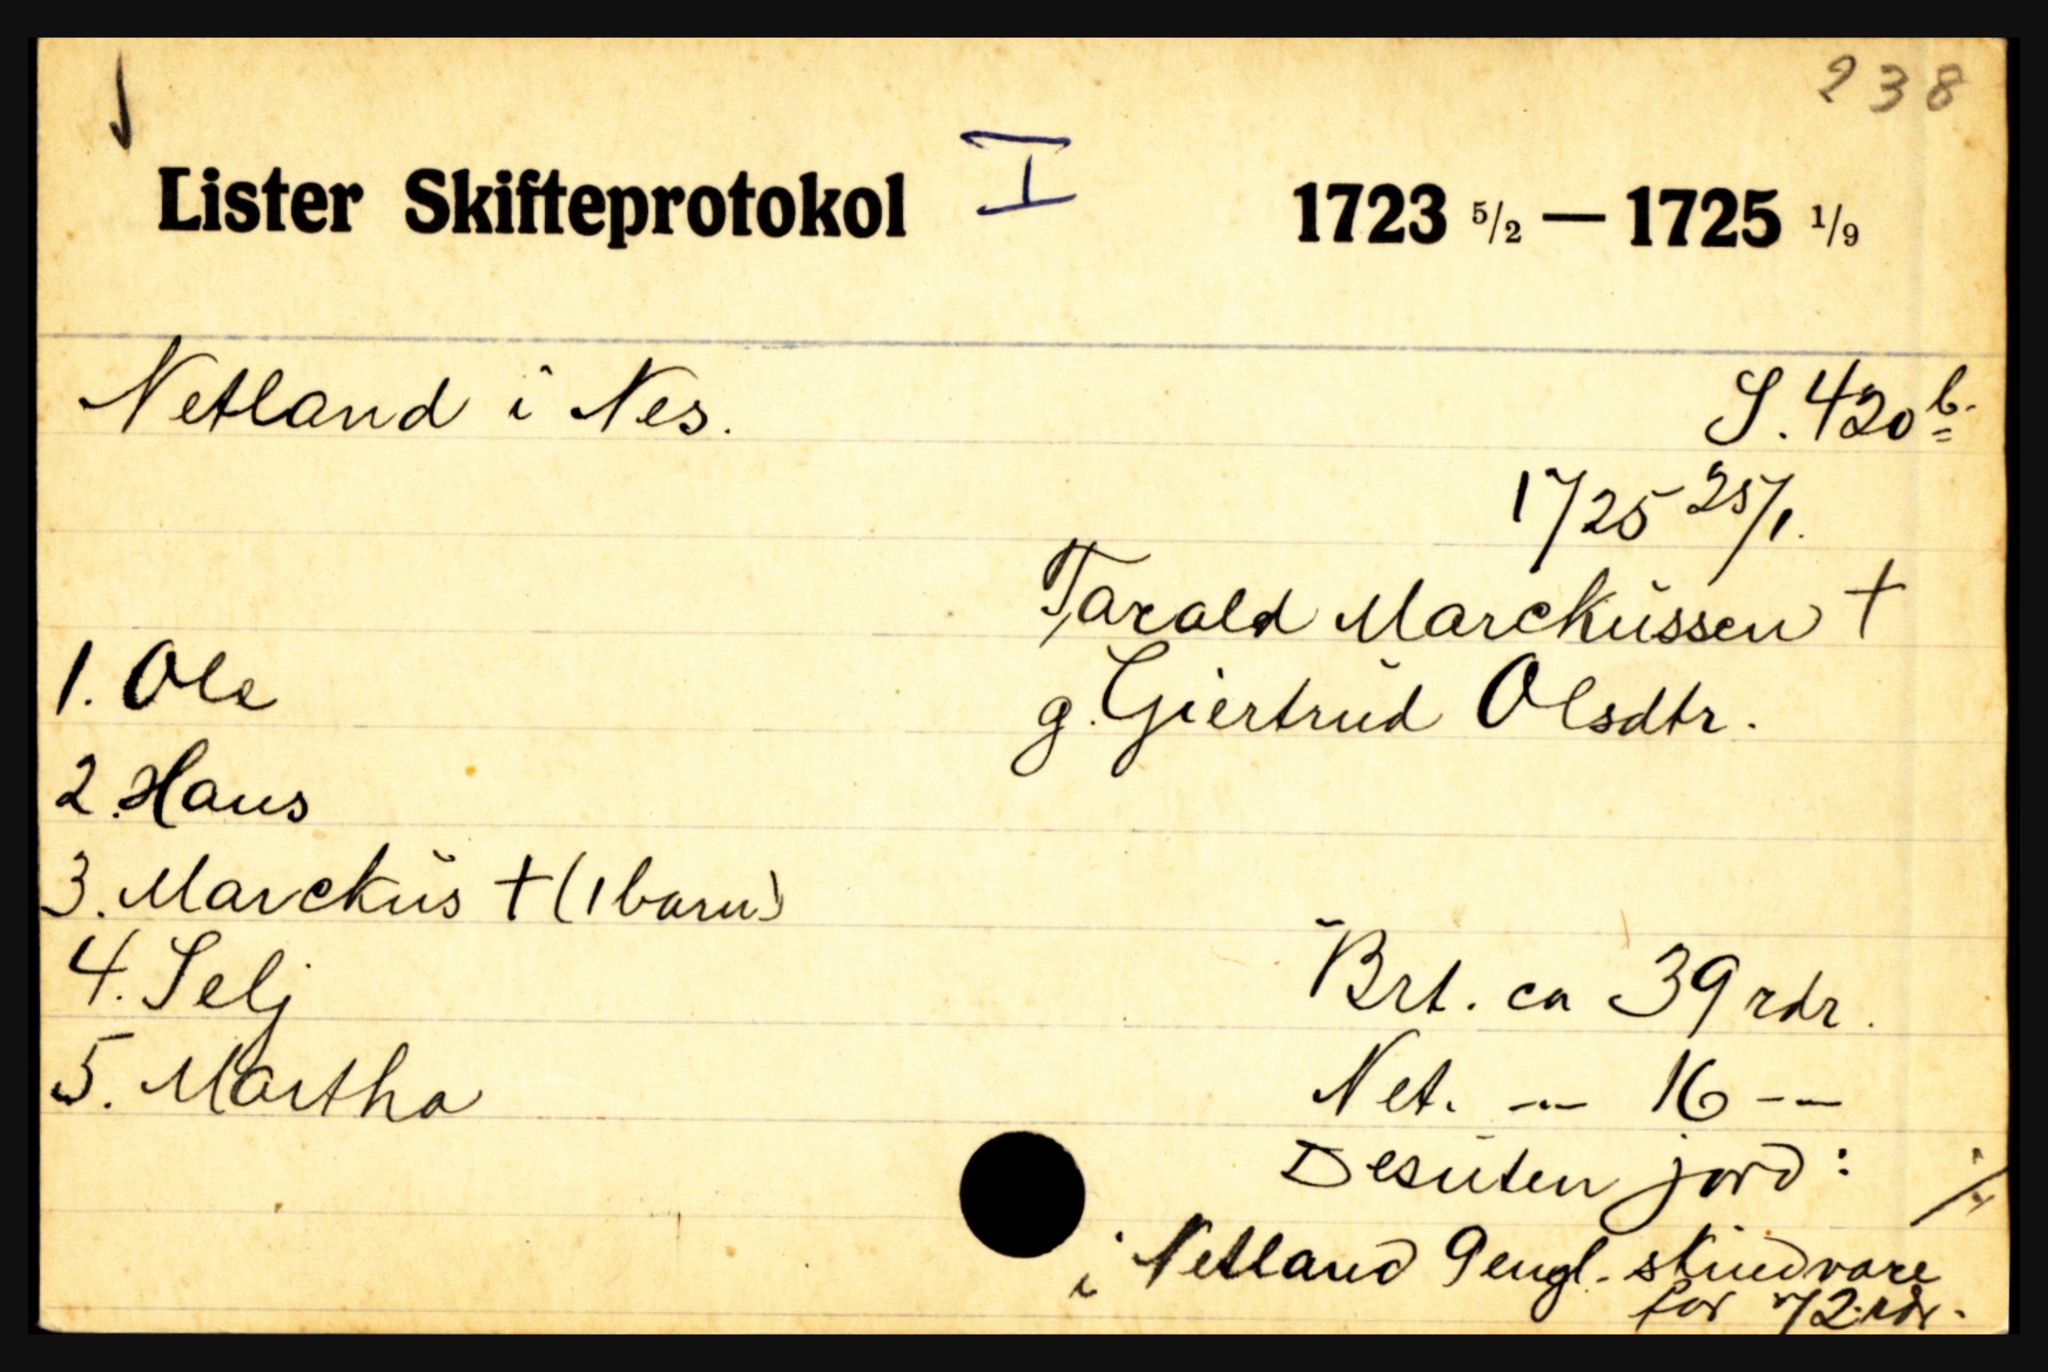 238
Lister Skifteprotokol I 1723 5/2 — 1725 1/9
Netland i Nes. S. 420 b.
1725 25/1.
Tarald Marckussen †
g. Giertrud Olsdtr.
1. Ole
2. Hans
3. Marckus † (1 barn)
4. Selj
5. Martha
Brt. ca 39 rdr.
Net. — 16 —
Desuten jord:
i Netland 9 engl. skindvare
for 72 rdr.